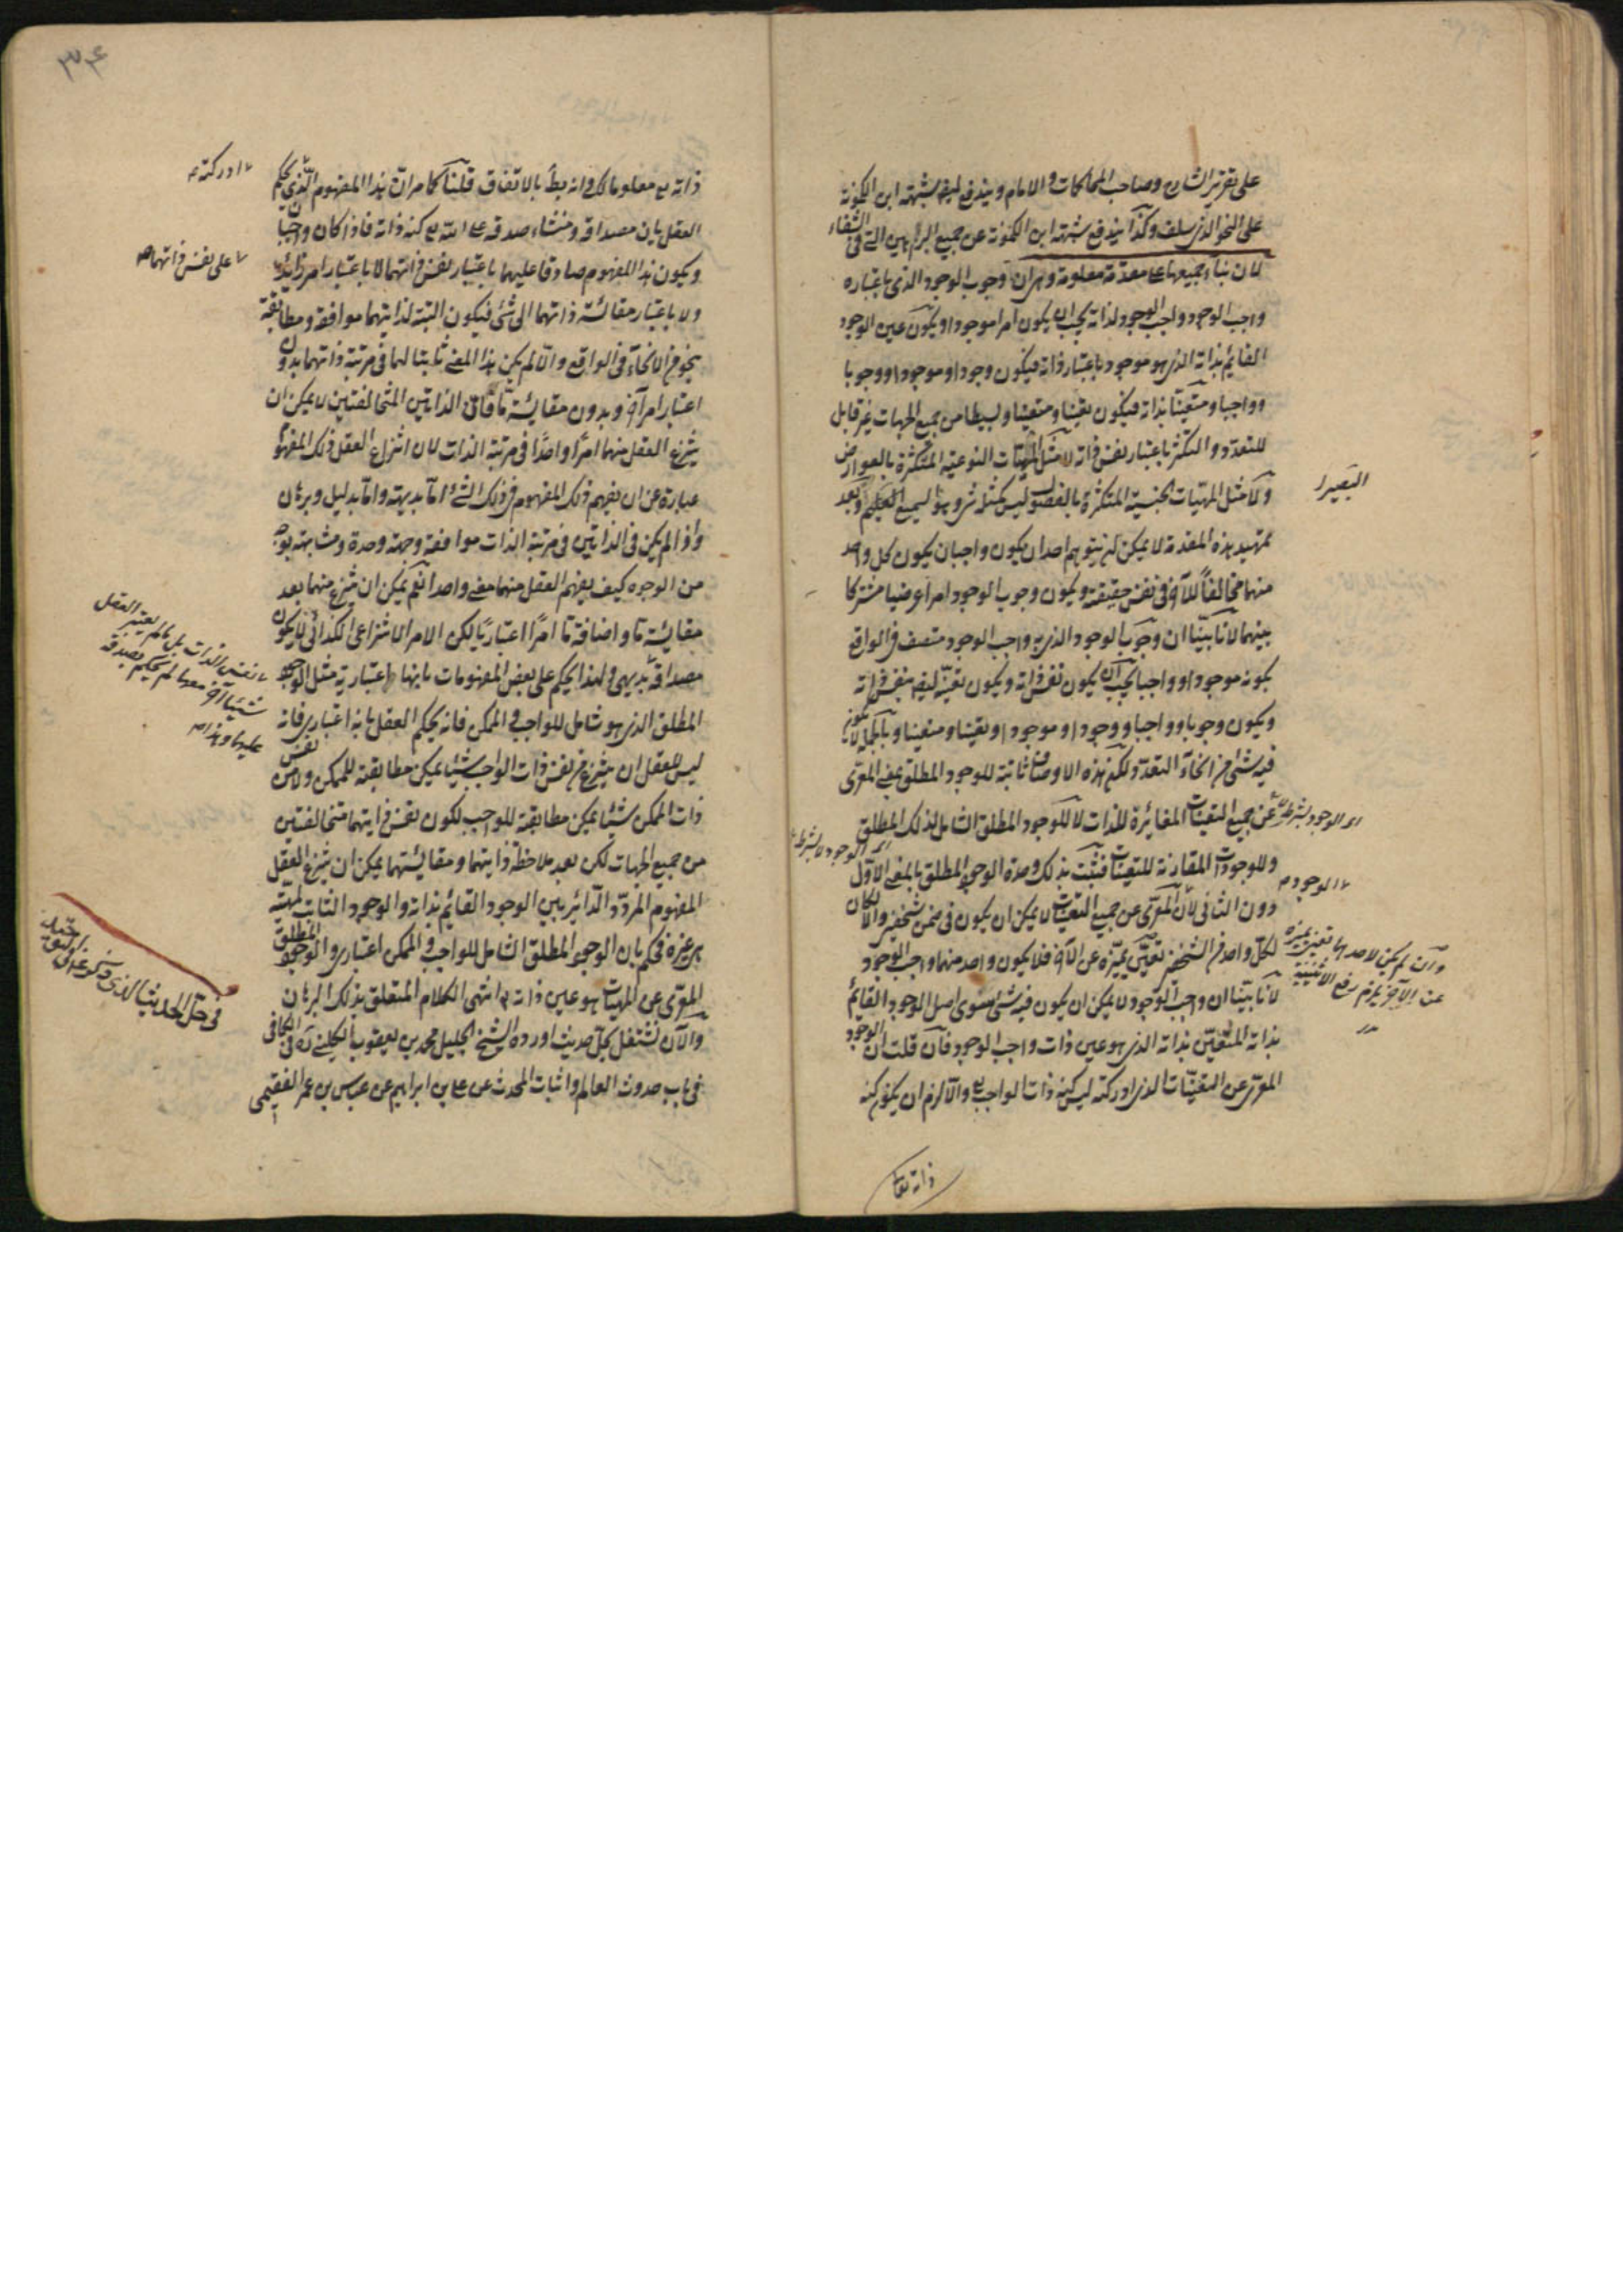 على تقرير الشارح وصاحب المحاكمات والامام ويندفع ايضا شبهة ابن الكمونة
على النحو الذى سلف وكذا يندفع شبهة ابن الكمونة عن جميع البراهين التى فى الشفاء
لان بناء جميعها على مقدمة معلومة وهى ان وجوب الوجود الذى باعتباره
واجب الوجود واجب الوجود لذاته يجب ان يكون امرا موجودا ويكون عين الوجود
القائم بذاته الذى هو موجود باعتبار ذاته فيكون وجودا وموجودا ووجوبا
وواجبا ومتعينا بذاته فيكون تعينا ومتعينا وبسيطا من جميع الجهات غير قابل
للتعدد والتكثر باعتبار نفس ذاته لا مثل المهيات النوعية المتكثرة بالعوارض
ولا مثل المهيات الجنسية المتكثرة بالفصول ليس كمثله شئ وهو السميع العليم وبعد
البصير
تمهيد هذه المقدمة لا يمكن ان يتوهم احد ان يكون واجبان يكون كل واحد
منهما مخالفا للآخر فى نفس حقيقته ويكون وجوب الوجود امرا عرضيا مشتركا
بينهما لانا بينا ان وجوب الوجود الذى به واجب الوجود متصف فى الواقع
بكونه موجودا وواجبا يجب ان يكون نفس ذاته ويكون تعينه ايضا بنفس ذاته
ويكون وجوبا وواجبا ووجودا وموجودا وتعينا ومتعينا وبالجملة لا يكون
فيه شئ من انحاء التعدد ولكن هذه الاوصاف ثابتة للوجود المطلق بمعنى المعرى
عن جميع التعينات المغايرة للذات لا للوجود المطلق الشامل لذلك المطلق
اى الوجود بشرط لا
اى الوجود لا بشرط
وللوجودات المقارنة للتعينات فثبت بذلك وحدة الوجود المطلق بالمعنى الاول
دون الثانى لان المعرى عن جميع التعينات لا يمكن ان يكون فى ضمن شخصين والا لكان
الوجود
لكل واحد من الشخصين تعين يميزه عن الآخر فلا يكون واحد منهما واجب الوجود
وان لم يكن لاحدهما تعين يميزه
عن الآخر يلزم رفع الاثنينية
لانا بينا ان واجب الوجود لا يمكن ان يكون فيه شئ سوى اصل الوجود القائم
بذاته المتعين بذاته الذى هو عين ذات واجب الوجود فان قلت ان الوجود
المعرى عن التعينات الذى ادركته ليس كنه ذات الواجب تع والا لزم ان يكون كنه
ذاته تعالى
٣٤
ذاته تع معلوما لك وانه بط بالاتفاق قلنا كما مر ان هذا المفهوم الذى يحكم
ادركته
العقل بان مصداقه ومنشاء صدقه على الله تع كنه ذاته فاذا كان واجبان
ويكون هذا المفهوم صادقا عليهما باعتبار نفس ذاتهما لا باعتبار امر زائد
على نفس ذاتهما
ولا باعتبار مقائسة ذاتهما الى شئ فيكون البتة لذاتيهما موافقة ومطابقة
بنحو من الانحاء فى الواقع والا لم يكن هذا المعنى ثابتا لهما فى مرتبة ذاتهما بدون
اعتبار امر آخر وبدون مقائسة ما فان الذاتين المتخالفتين لا يمكن ان
ينتزع العقل منهما امرا واحدا فى مرتبة الذات لان انتزاع العقل ذلك المفهوم
عبارة عن ان يفهم ذلك المفهوم من ذلك الشئ اما بديهة واما بدليل وبرهان
واذا لم يكن فى الذاتين فى مرتبة الذات موافقة وجهة وحدة ومشابهة بوجه
من الوجوه كيف يفهم العقل منهما معنى واحدا نعم يمكن ان ينتزع منهما بعد
مقائسة ما واضافة ما امرا اعتباريا لكن الامر الانتزاعى الكذائى لا يكون
نفس الذات بل ما لم يعتبر العقل
شيئا آخر معها لم يحكم بصدقه
عليها وهذا
مصداقه بديهى ولهذا يحكم على بعض المفهومات بانها اعتبارية مثل الوجود
المطلق الذى هو شامل للواجب والممكن فانه يحكم العقل بانه اعتبارى فانه
ليس للعقل ان ينتزع من نفس ذات الواجب شيئا يمكن مطابقته للممكن ولا من نفس
ذات الممكن شيئا يمكن مطابقته للواجب لكون نفس ذاتيهما متخالفتين
من جميع الجهات لكن بعد ملاحظة ذاتيهما ومقائستهما يمكن ان ينتزع العقل
المفهوم المردد الدائر بين الوجود القائم بذاته والوجود الثابت لمهية
هى غيره فحكم بان الوجود المطلق الشامل للواجب والممكن اعتبارى والوجود المطلق
المعرى عن المهيات هو عين ذاته تع انتهى الكلام المتعلق بذلك البرهان
فى حل الحديث الذى
والآن نشتغل بحل حديث اورده الشيخ الجليل محمد بن يعقوب الكلينى ره فى الكافى
فى باب حدوث العالم واثبات المحدث عن على بن ابراهيم عن عباس بن عمر الفقيمى